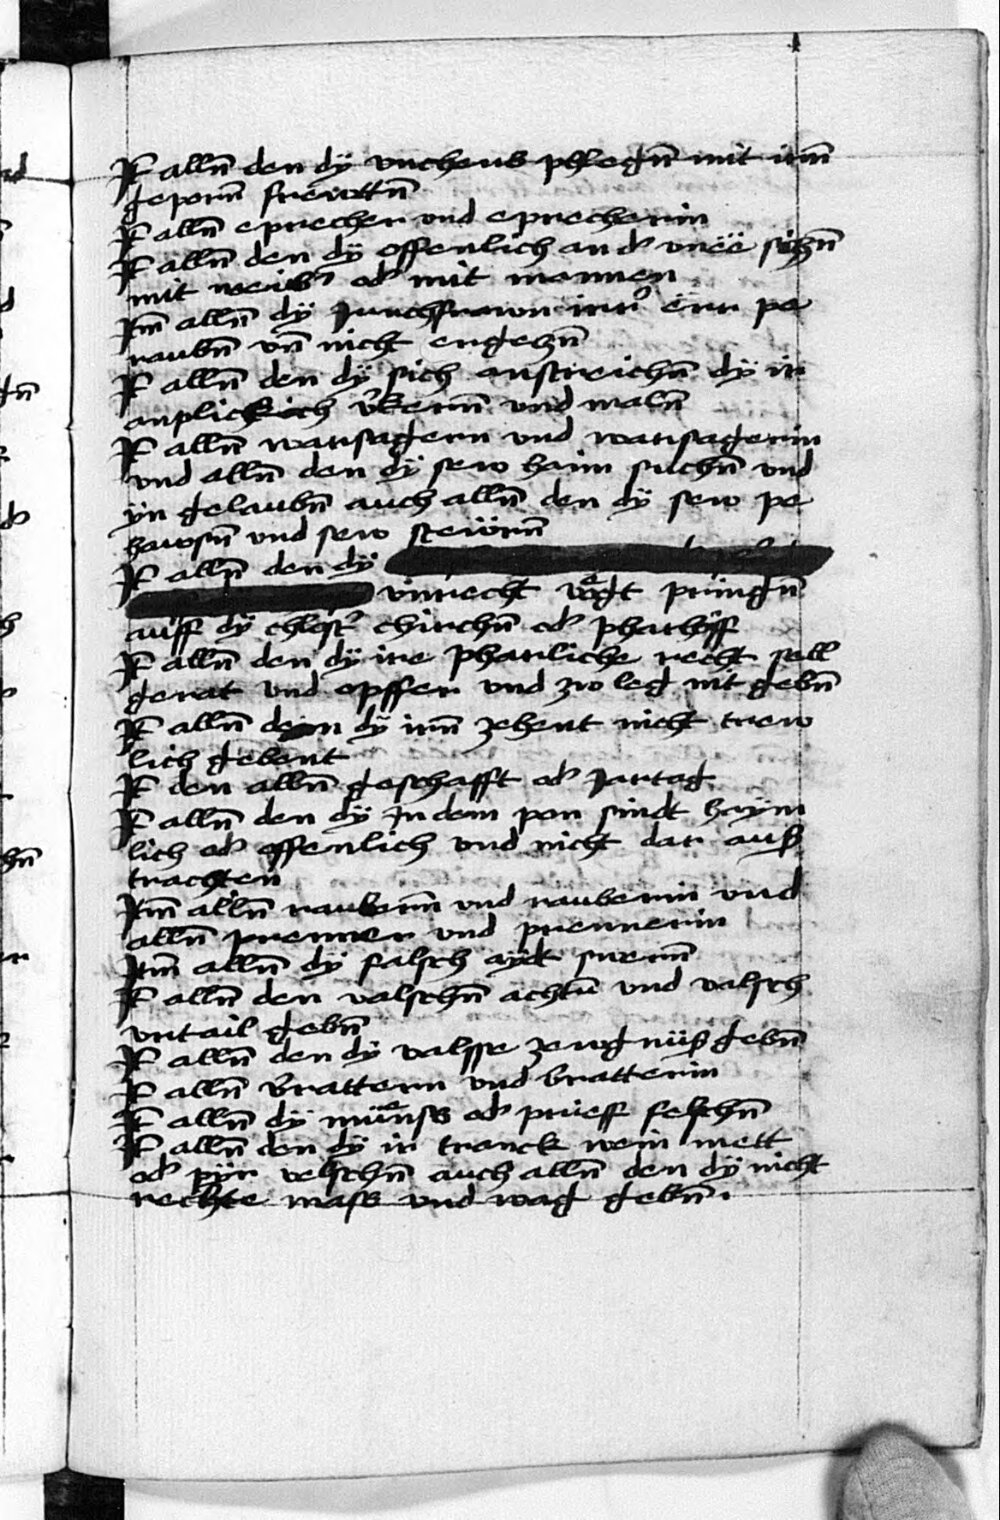 It allñ den dÿ vncheus phlegñ mit irñ
geporñ frewttñ
It allñ eprecher und eprecherin
It allñ den dÿ offenlich an d' vnëë siczñ
mit weibñ od' mit mannen
Itm̃ allñ dÿ Junchfrawn irer err pe
raubñ vñ nicht ergeczñ
It allñ den dÿ sich anstreichñ dÿ ir
anplick sich v'kerñ und malñ
It allñ warsagern und warsagerin
und allñ den dÿ sew haim suchñ und
ÿn gelaubñ auch allñ den dÿ sew pe
hawsñ und sew stewrñ
It allñ den dÿ
vnrecht vogt pringñ
auff dÿ chlost' chirchñ od' pharhöff
It allñ den dÿ ire pharliche recht sell
gerat und opffer und zw leg nit gebñ
It allñ den dÿ irñ zehent nicht trew
lich gebent
It den allñ geschafft od' Jartag
It allñ den dÿ In dem pan sindt haÿm
lich od' offenlich und nicht dar auß
trachten
Itm̃ allñ rauberñ und rauberin und
allñ prenner und prennerin
Itm̃ allñ dÿ falsch aydt swerñ
It allñ den valschñ acht und valsch
vrtail gebñ
It allñ den dÿ valsse zewgnüß gebñ
It allñ v'rattern und v'ratterin
It allñ dÿ münss od' prieff felschñ
It allñ den dÿ ir tranck wein mett
od' pÿr velschñ auch allñ den dÿ nicht
rechte mass und wag gebñ